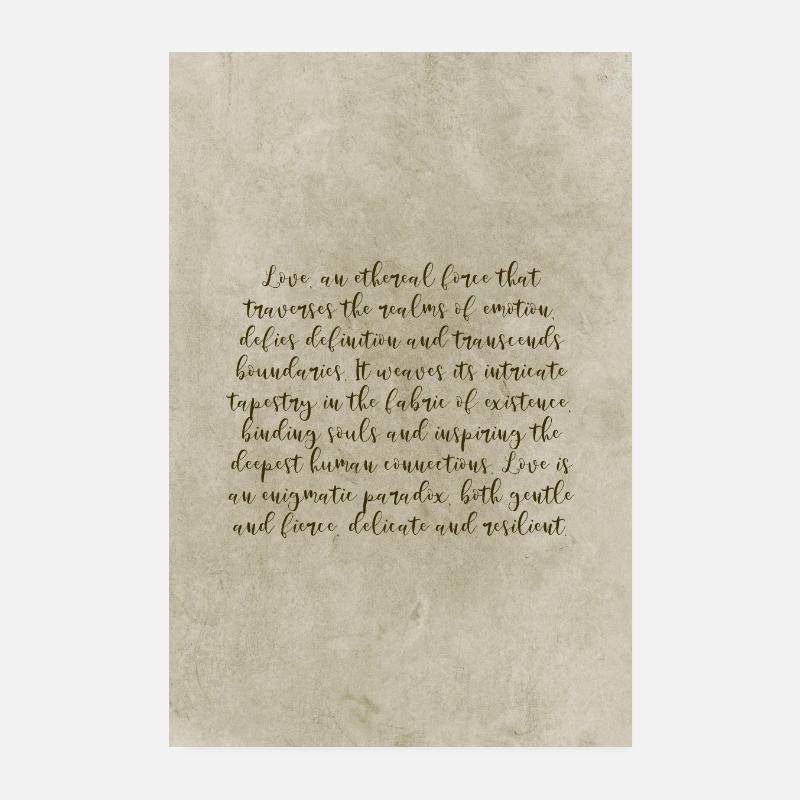 Love, an ethereal force that
traverses the realms of emotion,
defies definition and transcends
boundaries. It weaves its intricate
tapestry in the fabric of existence,
binding souls and inspiring the
deepest human connections. Love is
an enigmatic paradox, both gentle
and fierce, delicate and resilient.